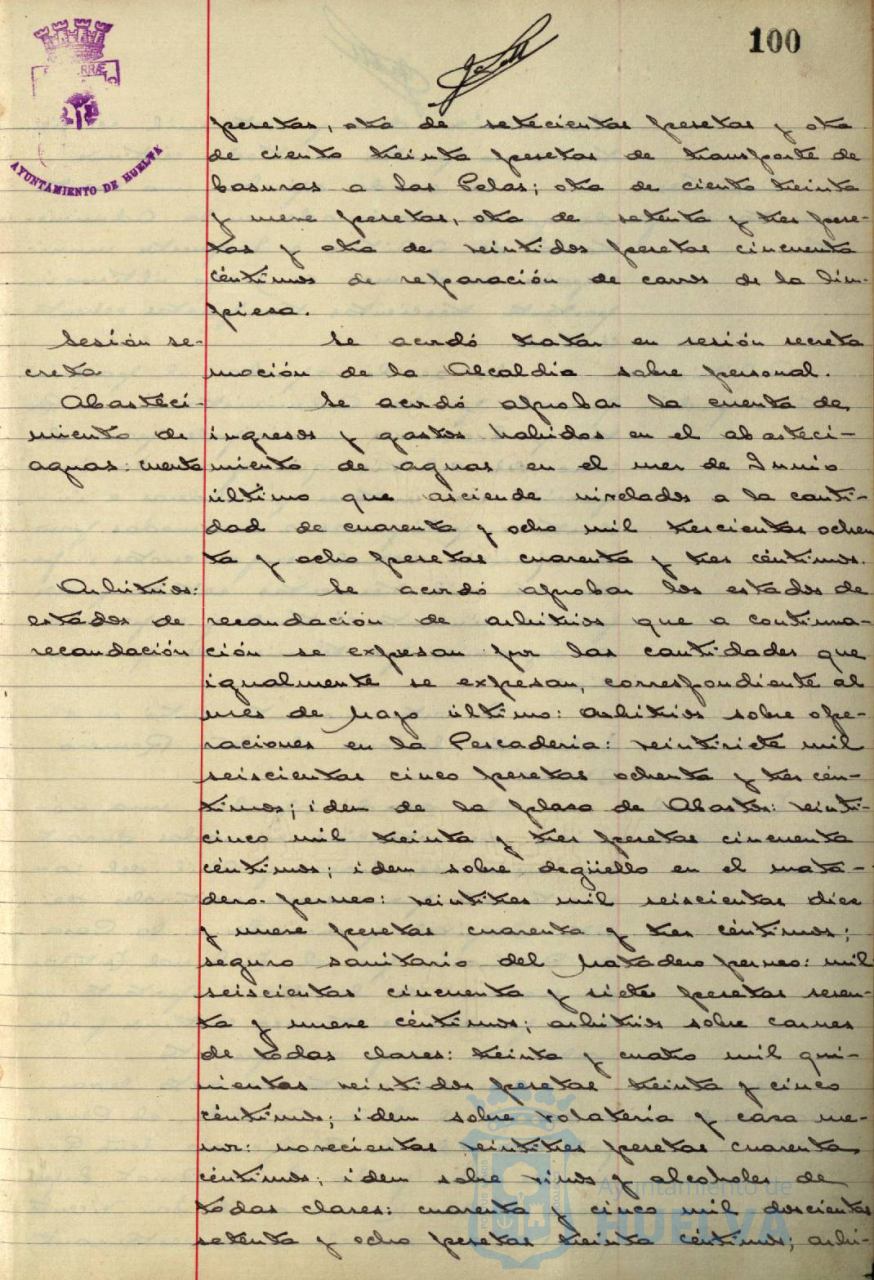 100
AYUNTAMIENTO DE HUELVA
pesetas, otra de setecientas pesetas y otra
de ciento treinta pesetas de transporte de
basuras a las Pelas; otra de ciento treinta
y nueve pesetas, otra de setenta y tres pese-
tas y otra de veintidos pesetas cincuenta
céntimos de reparación de carros de la lim-
pieza.
Sesión se-
creta
Se acordó tratar en sesión secreta
moción de la Alcaldia sobre personal.
Abasteci-
miento de
aguas: cuenta
Se acordó aprobar la cuenta de
ingresos y gastos habidos en el abasteci-
miento de aguas en el mes de Junio
último que asciende nivelados a la canti-
dad de cuarenta y ocho mil trescientas ochen
ta y ocho pesetas cuarenta y tres céntimos.
Arbitrios:
estados de
recaudación
Se acordó aprobar los estados de
recaudación de arbitrios que a continua-
ción se expresan por las cantidades que
igualmente se expresan, correspondiente al
mes de Mayo último: arbitrios sobre ope-
raciones en la Pescaderia: veintisiete mil
seiscientas cinco pesetas ochenta y tres cén-
timos; idem de la plaza de Abastos: veinti-
cinco mil treinta y tres pesetas cincuenta
céntimos; idem sobre degüello en el mata-
dero perneo: veintitres mil seiscientas diez
y nueve pesetas cuarenta y tres céntimos;
seguro sanitario del Matadero perneo: mil
seiscientas cincuenta y siete pesetas sesen-
ta y nueve céntimos; arbitrios sobre carnes
de todas clases: treinta y cuatro mil qui-
nientas veintidos pesetas treinta y cinco
céntimos; idem sobre volateria y caza me-
nor: novecientas veintitres pesetas cuarenta
céntimos; idem sobre vinos y alcoholes de
todas clases: cuarenta y cinco mil doscientas
setenta y ocho pesetas treinta céntimos; arbi-
Ayuntamiento de
HUELVA